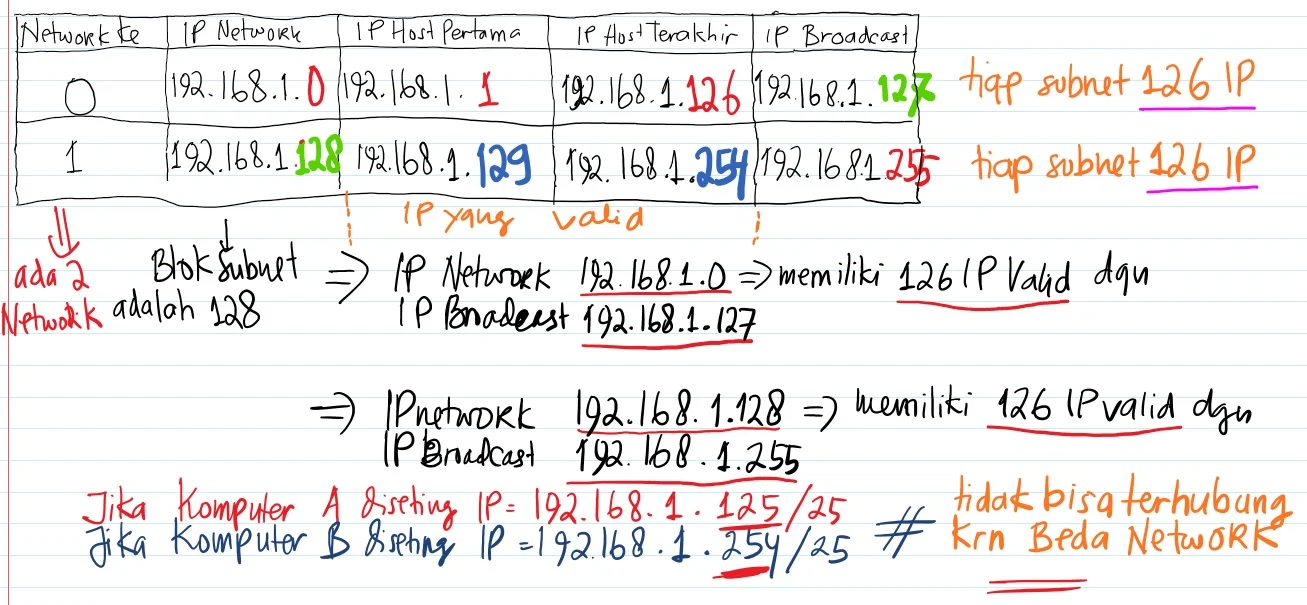 Network ke IP Network IP Host Pertama IP Host Terakhir IP Broadcast
0 192.168.1.0 192.168.1.1 192.168.1.126 192.168.1.127 tiap subnet 126 IP
1 192.168.1.128 192.168.1.129 192.168.1.254 192.168.1.255 tiap subnet 126 IP
IP yang valid
ada 2 Network
Blok Subnet adalah 128
=> IP Network 192.168.1.0 => memiliki 126 IP Valid dgn
IP Broadcast 192.168.1.127
=> IP network 192.168.1.128 => memiliki 126 IP valid dgn
IP Broadcast 192.168.1.255
Jika Komputer A diseting IP= 192.168.1.125/25
Jika Komputer B diseting IP =192.168.1.254/25
# tidak bisa terhubung
krn Beda NetwORK